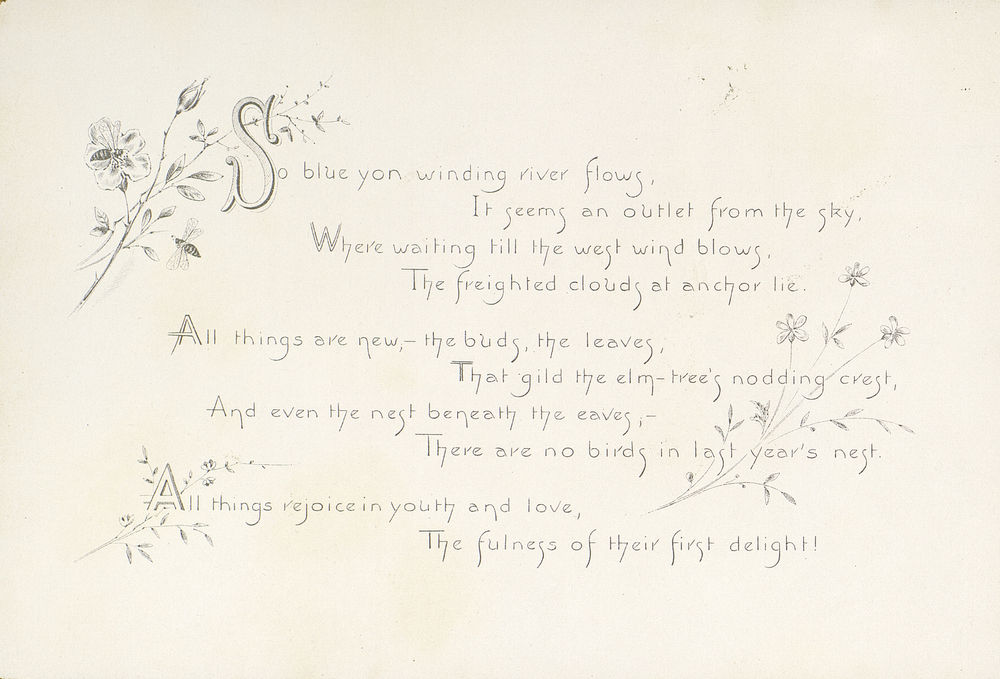 So blue yon winding river flows,
It seems an outlet from the sky,
Where waiting till the west wind blows,
The freighted clouds at anchor lie.
All things are new,– the buds, the leaves,
That gild the elm-tree's nodding crest,
And even the nest beneath the eaves;–
There are no birds in last year's nest.
All things rejoice in youth and love,
The fulness of their first delight!